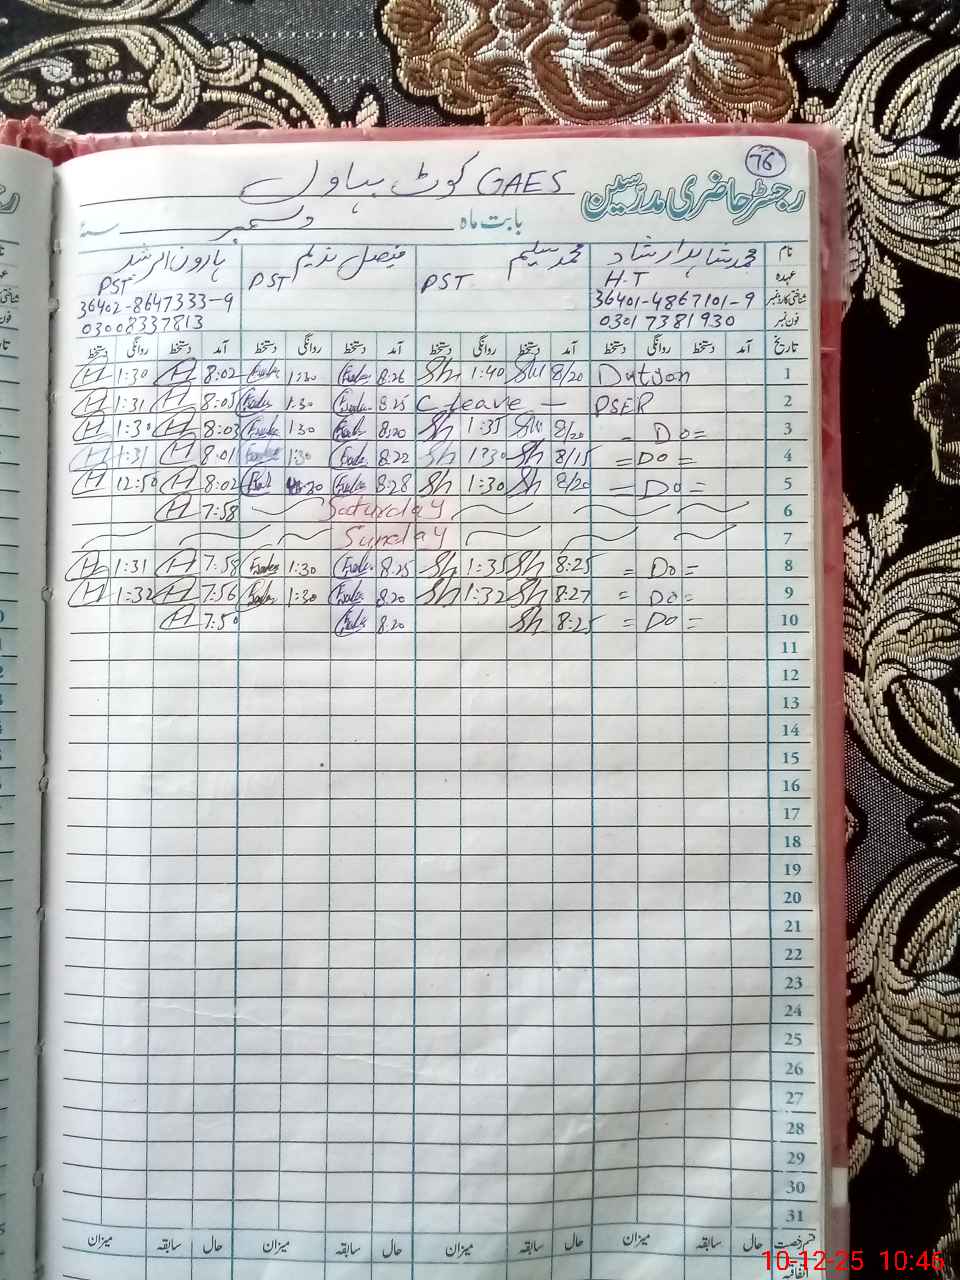 76
رجسٹر حاضری مدرسین GAES کوٹ بہاول
بابت ماہ دسمبر سنۂ
نام محمد شاہد ارشاد محمد سلیم فیصل ندیم ہارون الرشد
عہدہ H.T PST PST PST
شناختی کارڈ نمبر 36401-4867101-9 36402-8647333-9
فون نمبر 03017381930 03008337813
تاریخ آمد دستخط روانگی دستخط آمد دستخط روانگی دستخط آمد دستخط روانگی دستخط آمد دستخط روانگی دستخط
1 Dutyon 8/20 1:40 Sh 8:26 1:30 8:02 H 1:30 H
2 PSER C leave — 8:25 1:30 8:05 H 1:31 H
3 - Do = 8/20 1:35 Sh 8:20 1:30 8:03 H 1:30 H
4 = Do = 8/15 Sh 1:30 Sh 8:22 1:30 8:01 H 1:31 H
5 - Do = 8/20 Sh 1:30 Sh 8:28 8:02 H 12:50 H
6 Saturday 7:58 H
7 Sunday
8 = Do = 8:25 Sh 1:35 Sh 8:25 1:30 7:58 H 1:31 H
9 = Do = 8:27 Sh 1:32 Sh 8:20 1:30 7:56 H 1:32 H
10 = Do = 8:25 Sh 8:20 7:50 H
11
12
13
14
15
16
17
18
19
20
21
22
23
24
25
26
27
28
29
30
31
قسم رخصت حال سابقہ میزان حال سابقہ میزان حال سابقہ میزان حال سابقہ میزان
اتفاقیہ
10-12-25 10:46